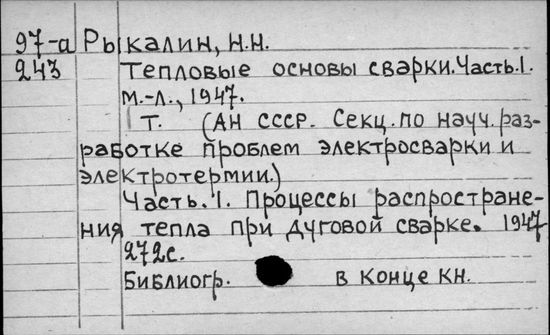 97-а Рыкалин, Н.Н.
243 Тепловые основы сварки. Часть. 1.
М.-Л., 1947.
1 т. (АН СССР. Секц. по науч. раз-
работке проблем электросварки и
электротермии.)
Часть. 1. Процессы распростране-
ния тепла при дуговой сварке. 1947
272 с.
Библиогр. в конце кн.